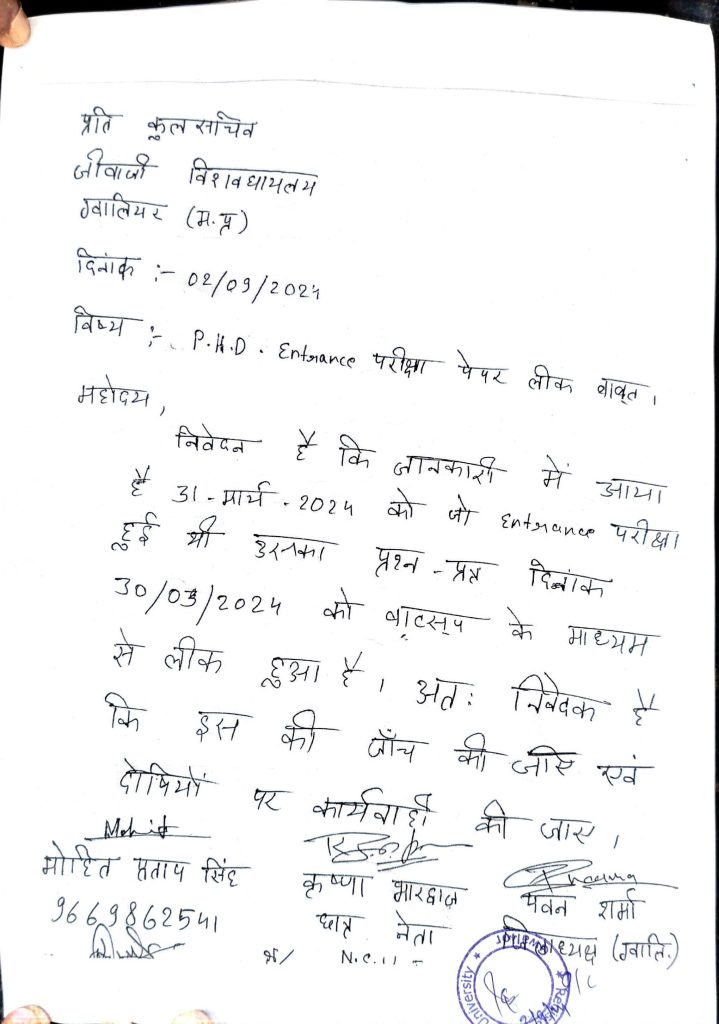 प्रति कुलसचिव
जीवाजी विशवधायलय
ग्वालियर (म.प्र)
दिनांक :- 02/09/2024
विषय :- P.H.D. Entrance परीक्षा पेपर लीक वावत।
महोदय,
निवेदन है कि जानकारी में आया
है 31-मार्च-2024 को जो Entrance परीक्षा
हुई थी उसका प्रश्न-पत्र दिनांक
30/03/2024 को वाटसप के माध्यम
से लीक हुआ है। अतः निवेदक है
कि इस की जाँच की जाए एवं
दोषियों पर कार्यवाही की जाए।
Mohit
मोहित प्रताप सिंह कृष्णा भारद्वाज पवन शर्मा
9669862541 छात्र नेता (ग्वालि.)
University